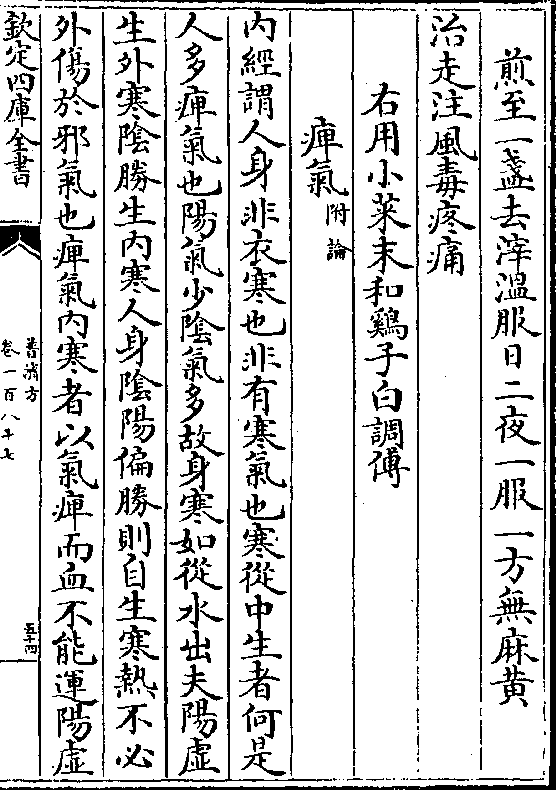 煎至一盞去滓溫服日二夜一服一方無麻黄
治走注風毒疼痛
右用小菜末和鷄子白調傅
痺氣附論
内經謂人身非衣寒也非有寒氣也寒從中生者何是
人多痺氣也陽氣少陰氣多故身寒如從水出夫陽虛
生外寒陰勝生内寒人身陰陽偏勝則自生寒熱不必
外傷於邪氣也痺氣内寒者以氣痺而血不能運陽虛
欽定四庫全書
普濟方
卷一百八十七
五十四